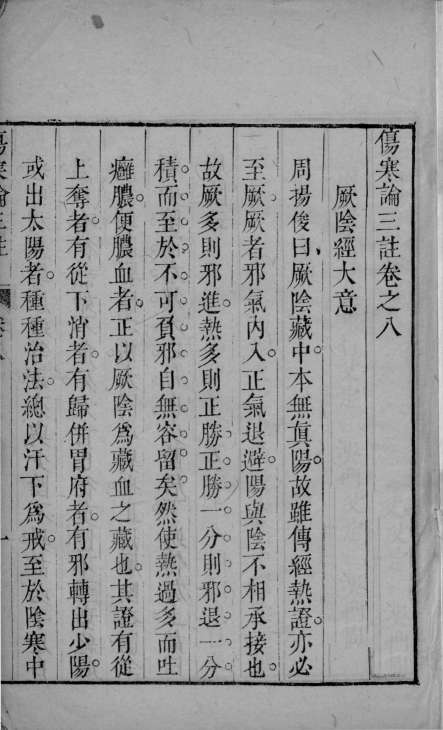 傷寒論三註卷之八
厥陰經大意
周揚俊曰厥陰藏中本無眞陽故雖傳經熱證亦必
至厥厥者邪氣內入正氣退避陽與陰不相承接也
故厥多則邪進熱多則正勝正勝一分則邪退一分
積而至於不可負邪自無容留矣然使熱過多而吐
癰膿便膿血者正以厥陰爲藏血之藏也其證有從
上奪者有從下消者有歸併胃府者有邪轉出少陽
或出太陽者種種治法總以汗下爲戒至於陰寒中
傷寒論三註
一